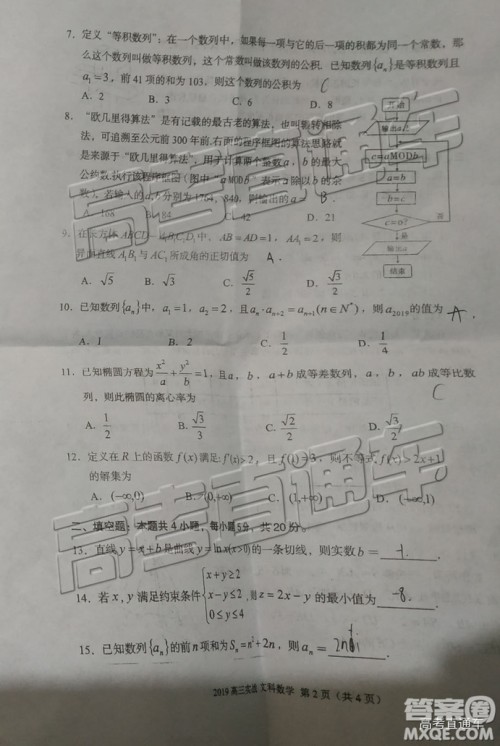 7. 定义“等积数列”：在一个数列中，如果每一项与它的后一项的积都为同一个常数，那
么这个数列叫做等积数列，这个常数叫做该数列的公积. 已知数列{aₙ}是等积数列且
a₁=3，前41项的和为103，则这个数列的公积为 C
A. 2 B. 3 C. 6 D. 8
8. “欧几里得算法”是有记载的最古老的算法，也叫辗转相除
法，可追溯至公元前300年前.右面的程序框图的算法思路就
是来源于“欧几里得算法”，用于计算两个量数a，b的最大
公约数.执行该程序框图（图中“aMODb”表示a除以b的余
数），若输入的a,b分别为1764，840，则输出的a= B.
A. 168 B. 84 C. 42 D. 21
开始
输入a,b
c=aMODb
a=b
b=c
c=0?
输出a
结束
9. 在长方体ABCD—A₁B₁C₁D₁中，AB=AD=1，AA₁=2，则
异面直线A₁B₁与AC₁所成角的正切值为 A.
A. √5 B. √3 C. √5/2 D. √3/2
10. 已知数列{aₙ}中，a₁=1，a₂=2，且aₙ·aₙ₊₂=aₙ₊₁(n∈N*)，则a₂₀₁₉的值为 A.
A. 1 B. 2 C. 1/2 D. 1/4
11. 已知椭圆方程为x²/a+y²/b=1，且a，b，a+b成等差数列，a，b，ab成等比数
列，则此椭圆的离心率为 C
A. 1/2 B. √3/3 C. √2/2 D. √3/2
12. 定义在R上的函数f(x)满足：f′(x)>2，且f(1)=3，则不等式f(x)>2x+1
的解集为
A. (−∞,0) B. (0,+∞) C. (1,+∞) D. (−∞,1)
二、填空题：本题共4小题，每小题5分，共20分.
13. 直线y=x+b是曲线y=lnx(x>0)的一条切线，则实数b= -1.
14. 若x,y满足约束条件{x+y≥2 x−y≤2 0≤y≤4，则z=2x−y的最小值为 -8.
15. 已知数列{aₙ}的前n项和为Sₙ=n²+2n，则aₙ= 2n+1
2019高三实战 文科数学 第2页（共4页）
高考直通车
高考直通车
答案圈
高考直通车
MXQE.COM